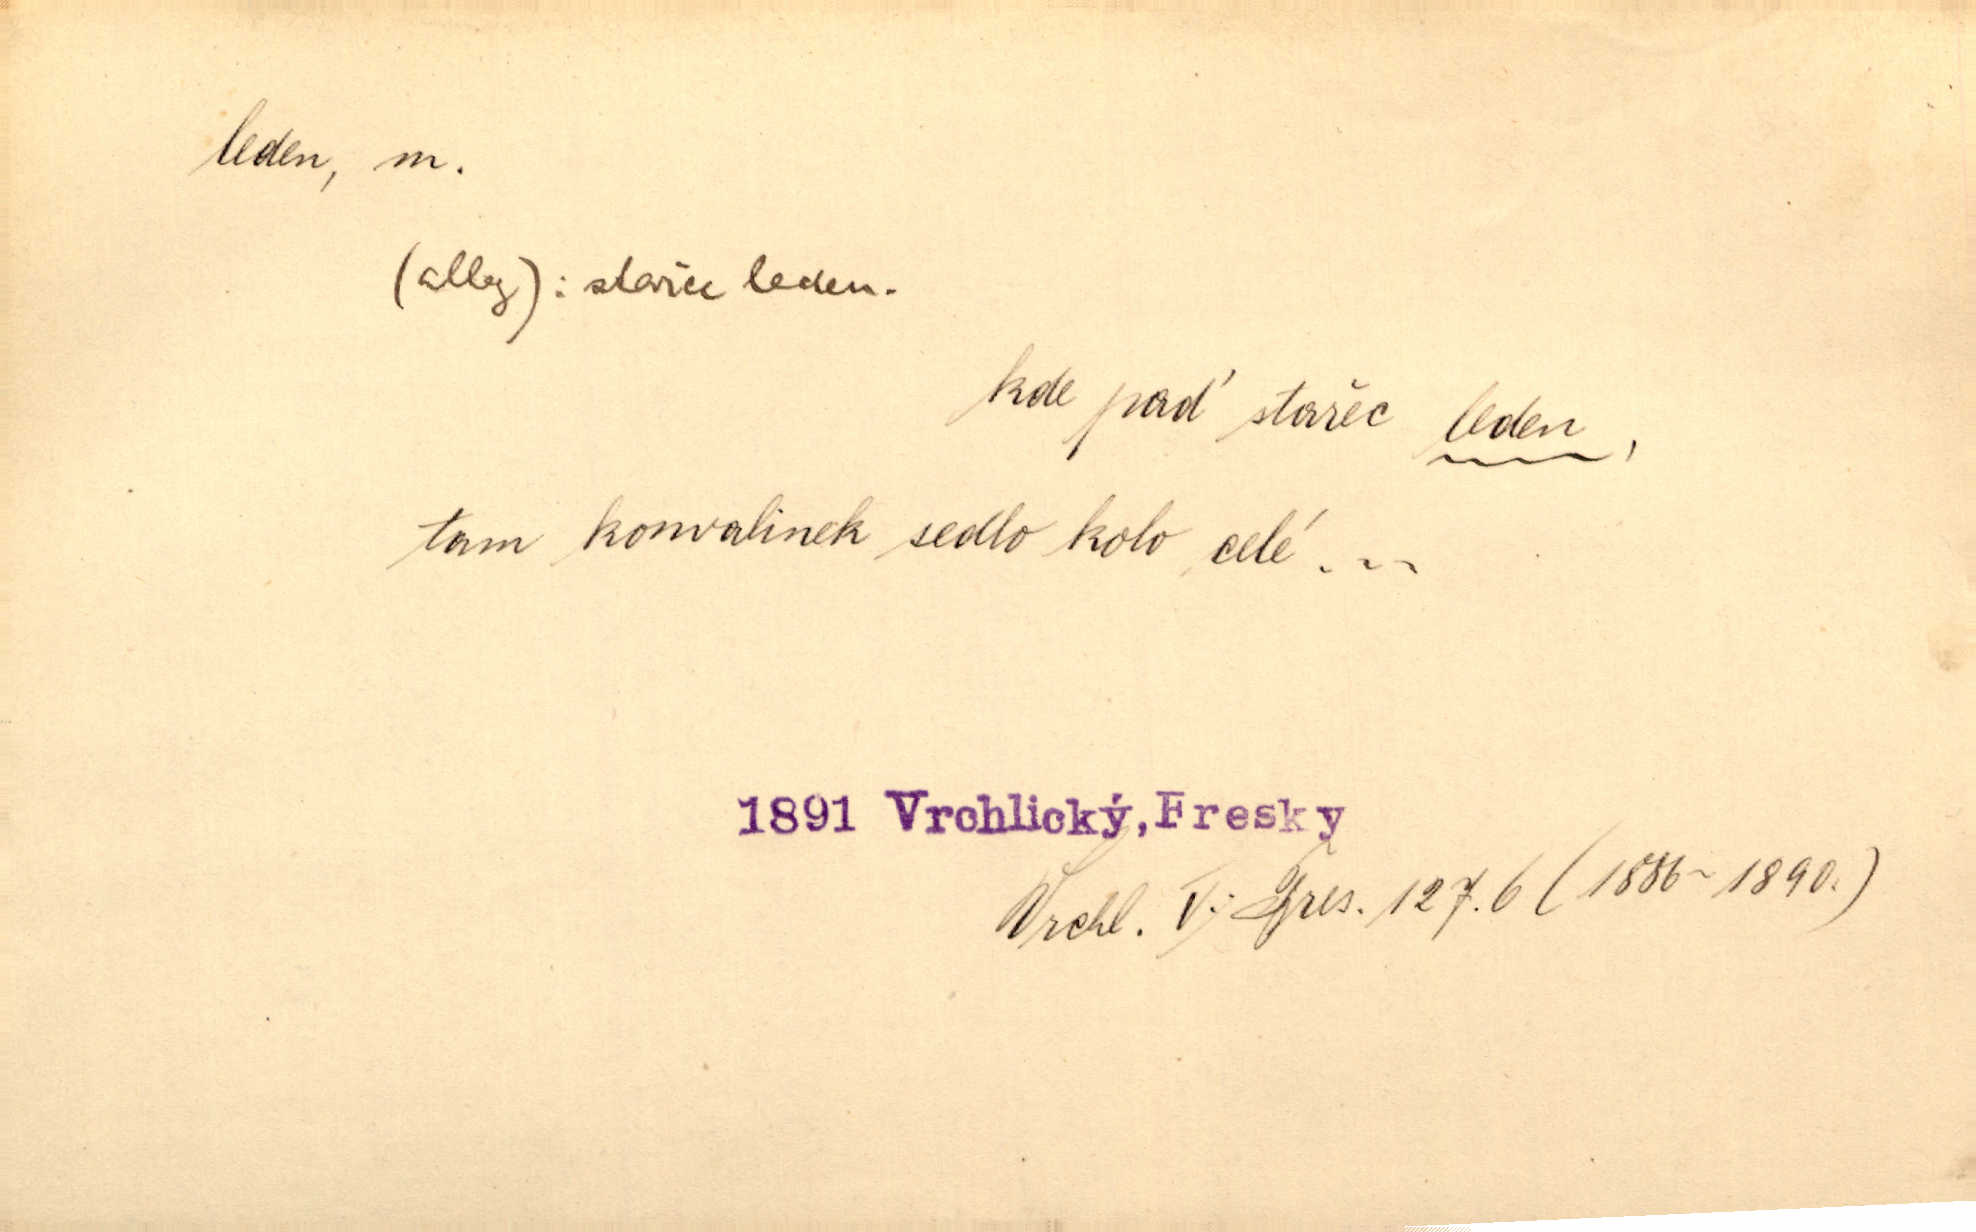 leden, m.
(alleg): stařec leden.
kde pad' stařec leden,
tam konvalinek sedlo kolo celé...
1891 Vrchlický, Fresky
Vrchl. V: Fres. 127.6 (1886-1890.)